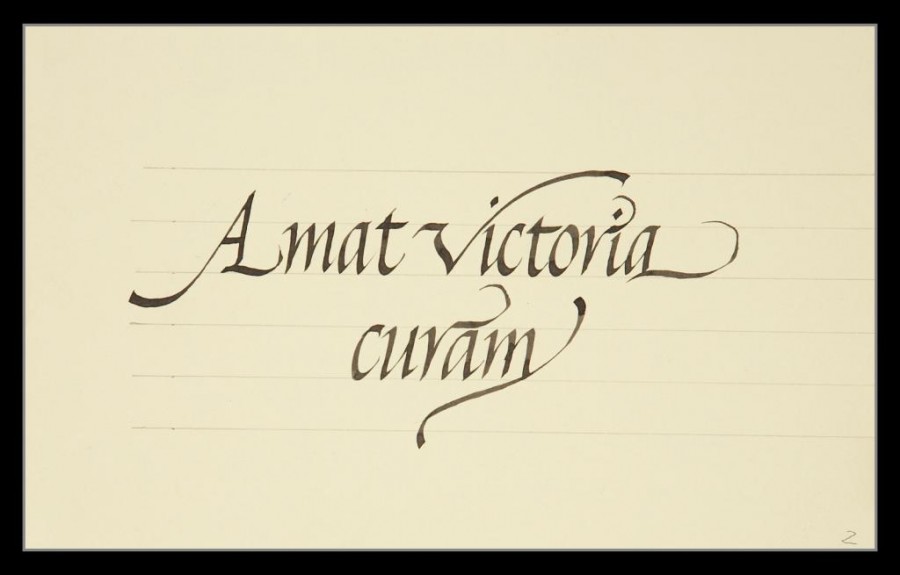 Amat Victoria
curam
2